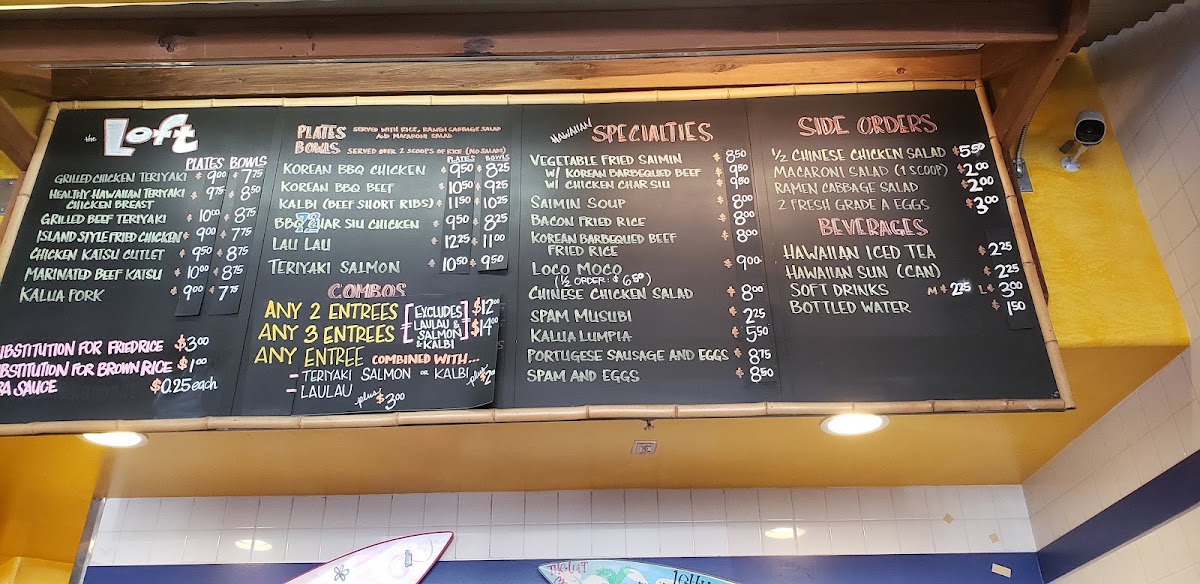 the Loft
PLATES BOWLS
GRILLED CHICKEN TERIYAKI $9.00 $7.75
HEALTHY HAWAIIAN TERIYAKI CHICKEN BREAST $9.75 $8.50
GRILLED BEEF TERIYAKI $10.00 $8.75
ISLAND STYLE FRIED CHICKEN $9.00 $7.75
CHICKEN KATSU CUTLET $9.50 $8.75
MARINATED BEEF KATSU $10.00 $8.75
KALUA PORK $9.00 $7.75
UBSTITUTION FOR FRIED RICE $3.00
UBSTITUTION FOR BROWN RICE $1.00
RA SAUCE $0.25 each
PLATES SERVED WITH RICE, RAMEN CABBAGE SALAD
AND MACARONI SALAD
BOWLS SERVED OVER 2 SCOOPS OF RICE (NO SALADS)
PLATES BOWLS
KOREAN BBQ CHICKEN $9.50 $8.25
KOREAN BBQ BEEF $10.50 $9.25
KALBI (BEEF SHORT RIBS) $11.50 $10.25
BBQ CHAR SIU CHICKEN $9.50 $8.25
LAU LAU $12.25 $11.00
TERIYAKI SALMON $10.50 $9.50
COMBOS
ANY 2 ENTREES [EXCLUDES $12.00
ANY 3 ENTREES LAULAU & SALMON & KALBI] $14.00
ANY ENTREE COMBINED WITH...
- TERIYAKI SALMON OR KALBI plus $2.00
- LAULAU plus $3.00
HAWAIIAN SPECIALTIES
VEGETABLE FRIED SAIMIN $8.50
W/ KOREAN BARBEQUED BEEF $9.50
W/ CHICKEN CHAR SIU $9.50
SAIMIN SOUP $8.00
BACON FRIED RICE $8.00
KOREAN BARBEQUED BEEF $8.00
FRIED RICE
LOCO MOCO $9.00
(½ ORDER: $6.50)
CHINESE CHICKEN SALAD $8.00
SPAM MUSUBI $2.25
KALUA LUMPIA $5.50
PORTUGESE SAUSAGE AND EGGS $8.75
SPAM AND EGGS $8.50
SIDE ORDERS
½ CHINESE CHICKEN SALAD $5.50
MACARONI SALAD (1 SCOOP) $2.00
RAMEN CABBAGE SALAD $2.00
2 FRESH GRADE A EGGS $3.00
BEVERAGES
HAWAIIAN ICED TEA $2.25
HAWAIIAN SUN (CAN) $2.25
SOFT DRINKS M $2.25 L $3.00
BOTTLED WATER $1.50